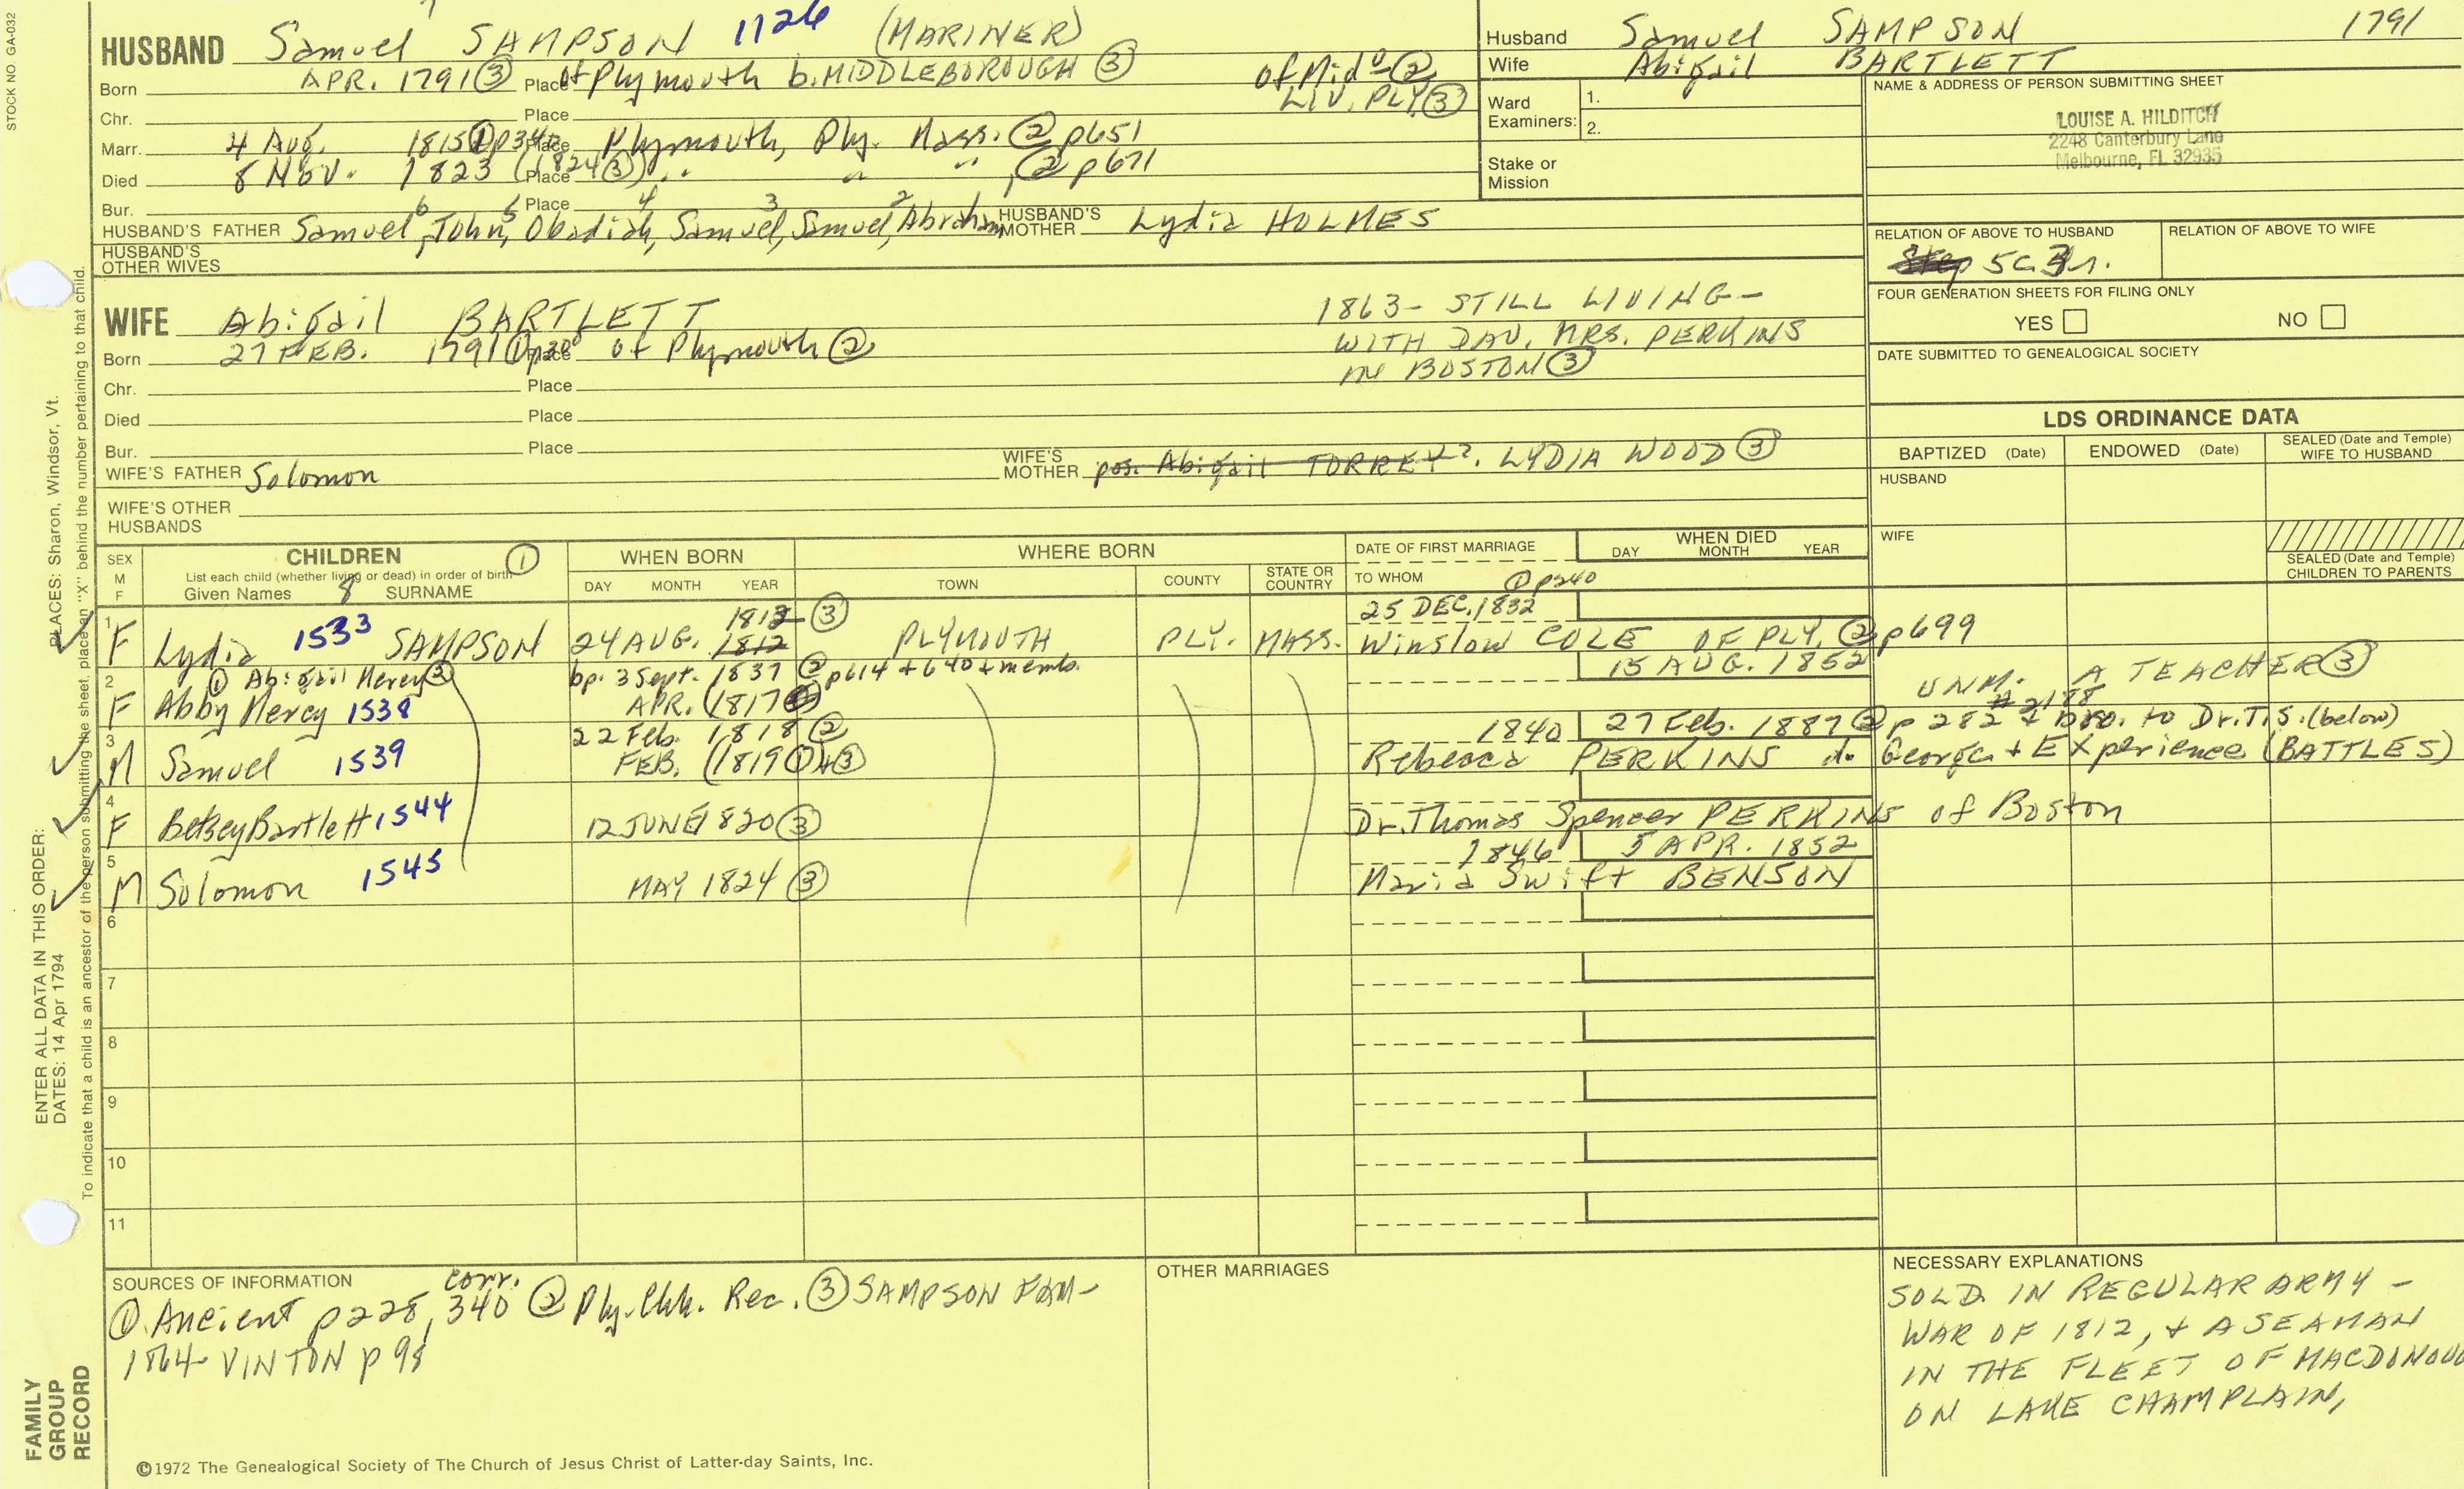 STOCK NO. GA-032
HUSBAND Samuel SAMPSON 1126 (MARINER)
Born APR. 1791 ③ Place of Plymouth b. MIDDLEBOROUGH ③ of Mid⁰ ②
LIV. PLY ③
Chr. Place
Marr. 4 Aug. 1815 ① p34 Place Plymouth, Ply. Mass. ② p651
Died 8 Nov. 1823 (1824 ③) Place " " " , ② p671
Bur. Place
HUSBAND'S FATHER Samuel⁶, John⁵, Obadiah⁴, Samuel³, Samuel², Abraham HUSBAND'S MOTHER Lydia HOLMES
HUSBAND'S OTHER WIVES
WIFE Abigail BARTLETT
Born 27 FEB. 1791 ① Place of Plymouth ②
Chr. Place
Died Place
Bur. Place
1863 - STILL LIVING -
WITH DAU. MRS. PERKINS
IN BOSTON ③
WIFE'S FATHER Solomon WIFE'S MOTHER pos. Abigail TORREY ?. LYDIA WOOD ③
WIFE'S OTHER HUSBANDS
Husband Samuel SAMPSON 1791
Wife Abigail BARTLETT
Ward Examiners: 1.
2.
Stake or Mission
NAME & ADDRESS OF PERSON SUBMITTING SHEET
LOUISE A. HILDITCH
2248 Canterbury Lane
Melbourne, FL 32935
RELATION OF ABOVE TO HUSBAND RELATION OF ABOVE TO WIFE
Step 5C
FOUR GENERATION SHEETS FOR FILING ONLY
YES NO
DATE SUBMITTED TO GENEALOGICAL SOCIETY
LDS ORDINANCE DATA
BAPTIZED (Date) ENDOWED (Date) SEALED (Date and Temple) WIFE TO HUSBAND
HUSBAND
WIFE
SEALED (Date and Temple) CHILDREN TO PARENTS
SEX M F
CHILDREN ①
List each child (whether living or dead) in order of birth
Given Names 8 SURNAME
WHEN BORN
DAY MONTH YEAR
WHERE BORN
TOWN COUNTY STATE OR COUNTRY
DATE OF FIRST MARRIAGE
TO WHOM
WHEN DIED
DAY MONTH YEAR
① p240
1 F Lydia 1533 SAMPSON 24 AUG. 1812 1812 ③ PLYMOUTH PLY. MASS. 25 DEC. 1832
Winslow COLE OF PLY. ② p699
2 ① Abigail Mercy ③ bp. 3 Sept. 1837 ② p614 + 640 + memb. 15 AUG. 1852
F Abby Mercy 1538 APR. (1817 UNM. A TEACHER ③
3 M Samuel 1539 22 Feb. 1818 ② FEB. (1819 ① + ③ 1840 27 Feb. 1887 ② p 282 + bro. to Dr. T.S. (below) # 2188
Rebecca PERKINS d. George + EXperience (BATTLES)
4 F Betsey Bartlett 1544 12 JUNE 1820 ③ Dr. Thomas Spencer PERKINS of Boston
5 M Solomon 1545 MAY 1824 ③ 1846 5 APR. 1852
Maria Swift BENSON
6
7
8
9
10
11
SOURCES OF INFORMATION
① Ancient p228, corr. 340 ② Ply. Chh. Rec. ③ SAMPSON FAM-
1864 VINTON p 98
OTHER MARRIAGES
NECESSARY EXPLANATIONS
SOLD. IN REGULAR ARMY -
WAR OF 1812, + A SEAMAN
IN THE FLEET OF MACDONOU
ON LAKE CHAMPLAIN,
©1972 The Genealogical Society of The Church of Jesus Christ of Latter-day Saints, Inc.
FAMILY GROUP RECORD
ENTER ALL DATA IN THIS ORDER:
DATES: 14 Apr 1794
PLACES: Sharon, Windsor, Vt.
To indicate that a child is an ancestor of the person submitting the sheet, place an "X" behind the number pertaining to that child.